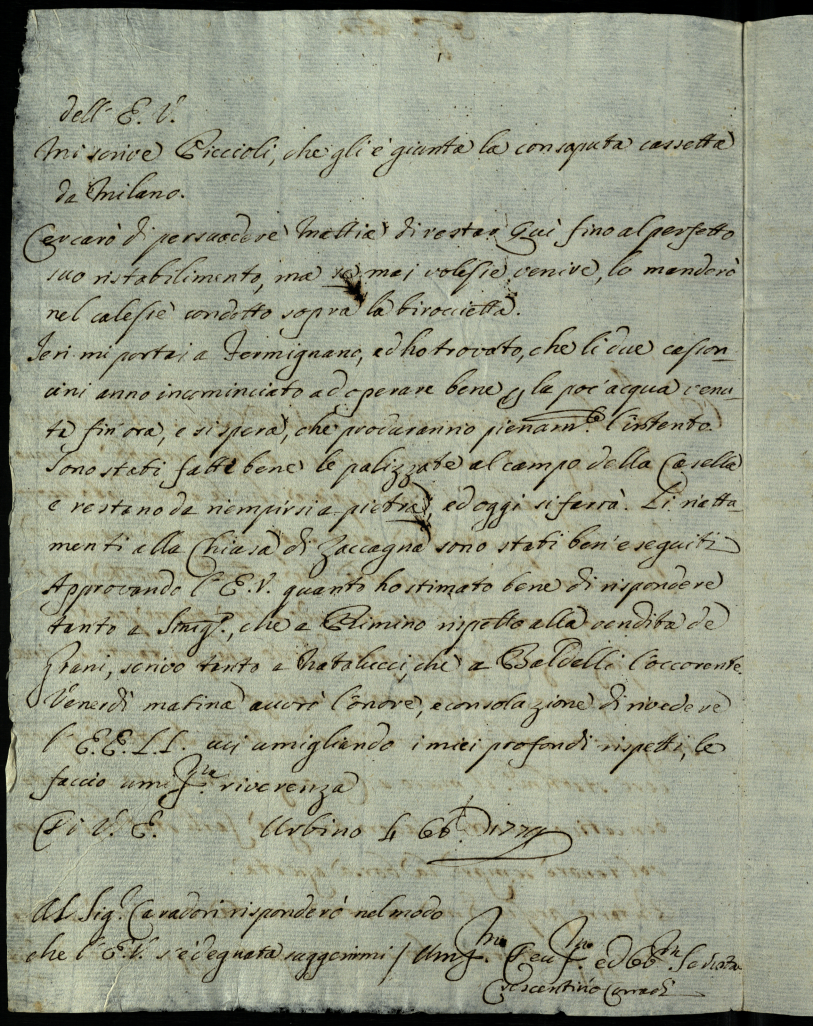 dell' E. V.
Mi scrive Piccioli, che gli è giunta la consaputa cassetta
da Milano.
Cercarò di persuadere Mattia di restar Quì fino al perfetto
suo ristabilimento, ma se mai volesse venire, lo manderò
nel calesse condotto sopra la biroccietta.
Ieri mi portai a Fermignano, ed ho trovato, che li due casson-
cini anno incominciato ad operare bene la poc'acqua venu-
ta fin'ora, e si spera, che procuranno pienam.te l'intento.
Sono stati fatti bene le palizzate al campo della Casella
e restano da riempirsi a pietra, ed oggi si farrà. Li riatta-
menti alla Chiusa di Zaccagna sono stati ben' eseguiti
Approvando l'E.V. quanto ho stimato bene di rispondere
tanto a Sinig.a, che a Rimino rispetto alla vendita de
Grani, scrivo tanto a Natalucci, che a Baldelli l'occorente.
Venerdì matina averò l'onore, e consolazione di rivedere
l'E.E. L.L. aci umigliando i miei profondi rispetti, le
faccio umil.ma riverenza
Di V. E. Urbino 4 8b.e 1779
Al Sig.r Cavadori risponderò nel modo
che l'E.V. s'è degnata suggerirmi / Um.mo Dev.mo ed Obb.mo Servitore
Crescentino Corradi